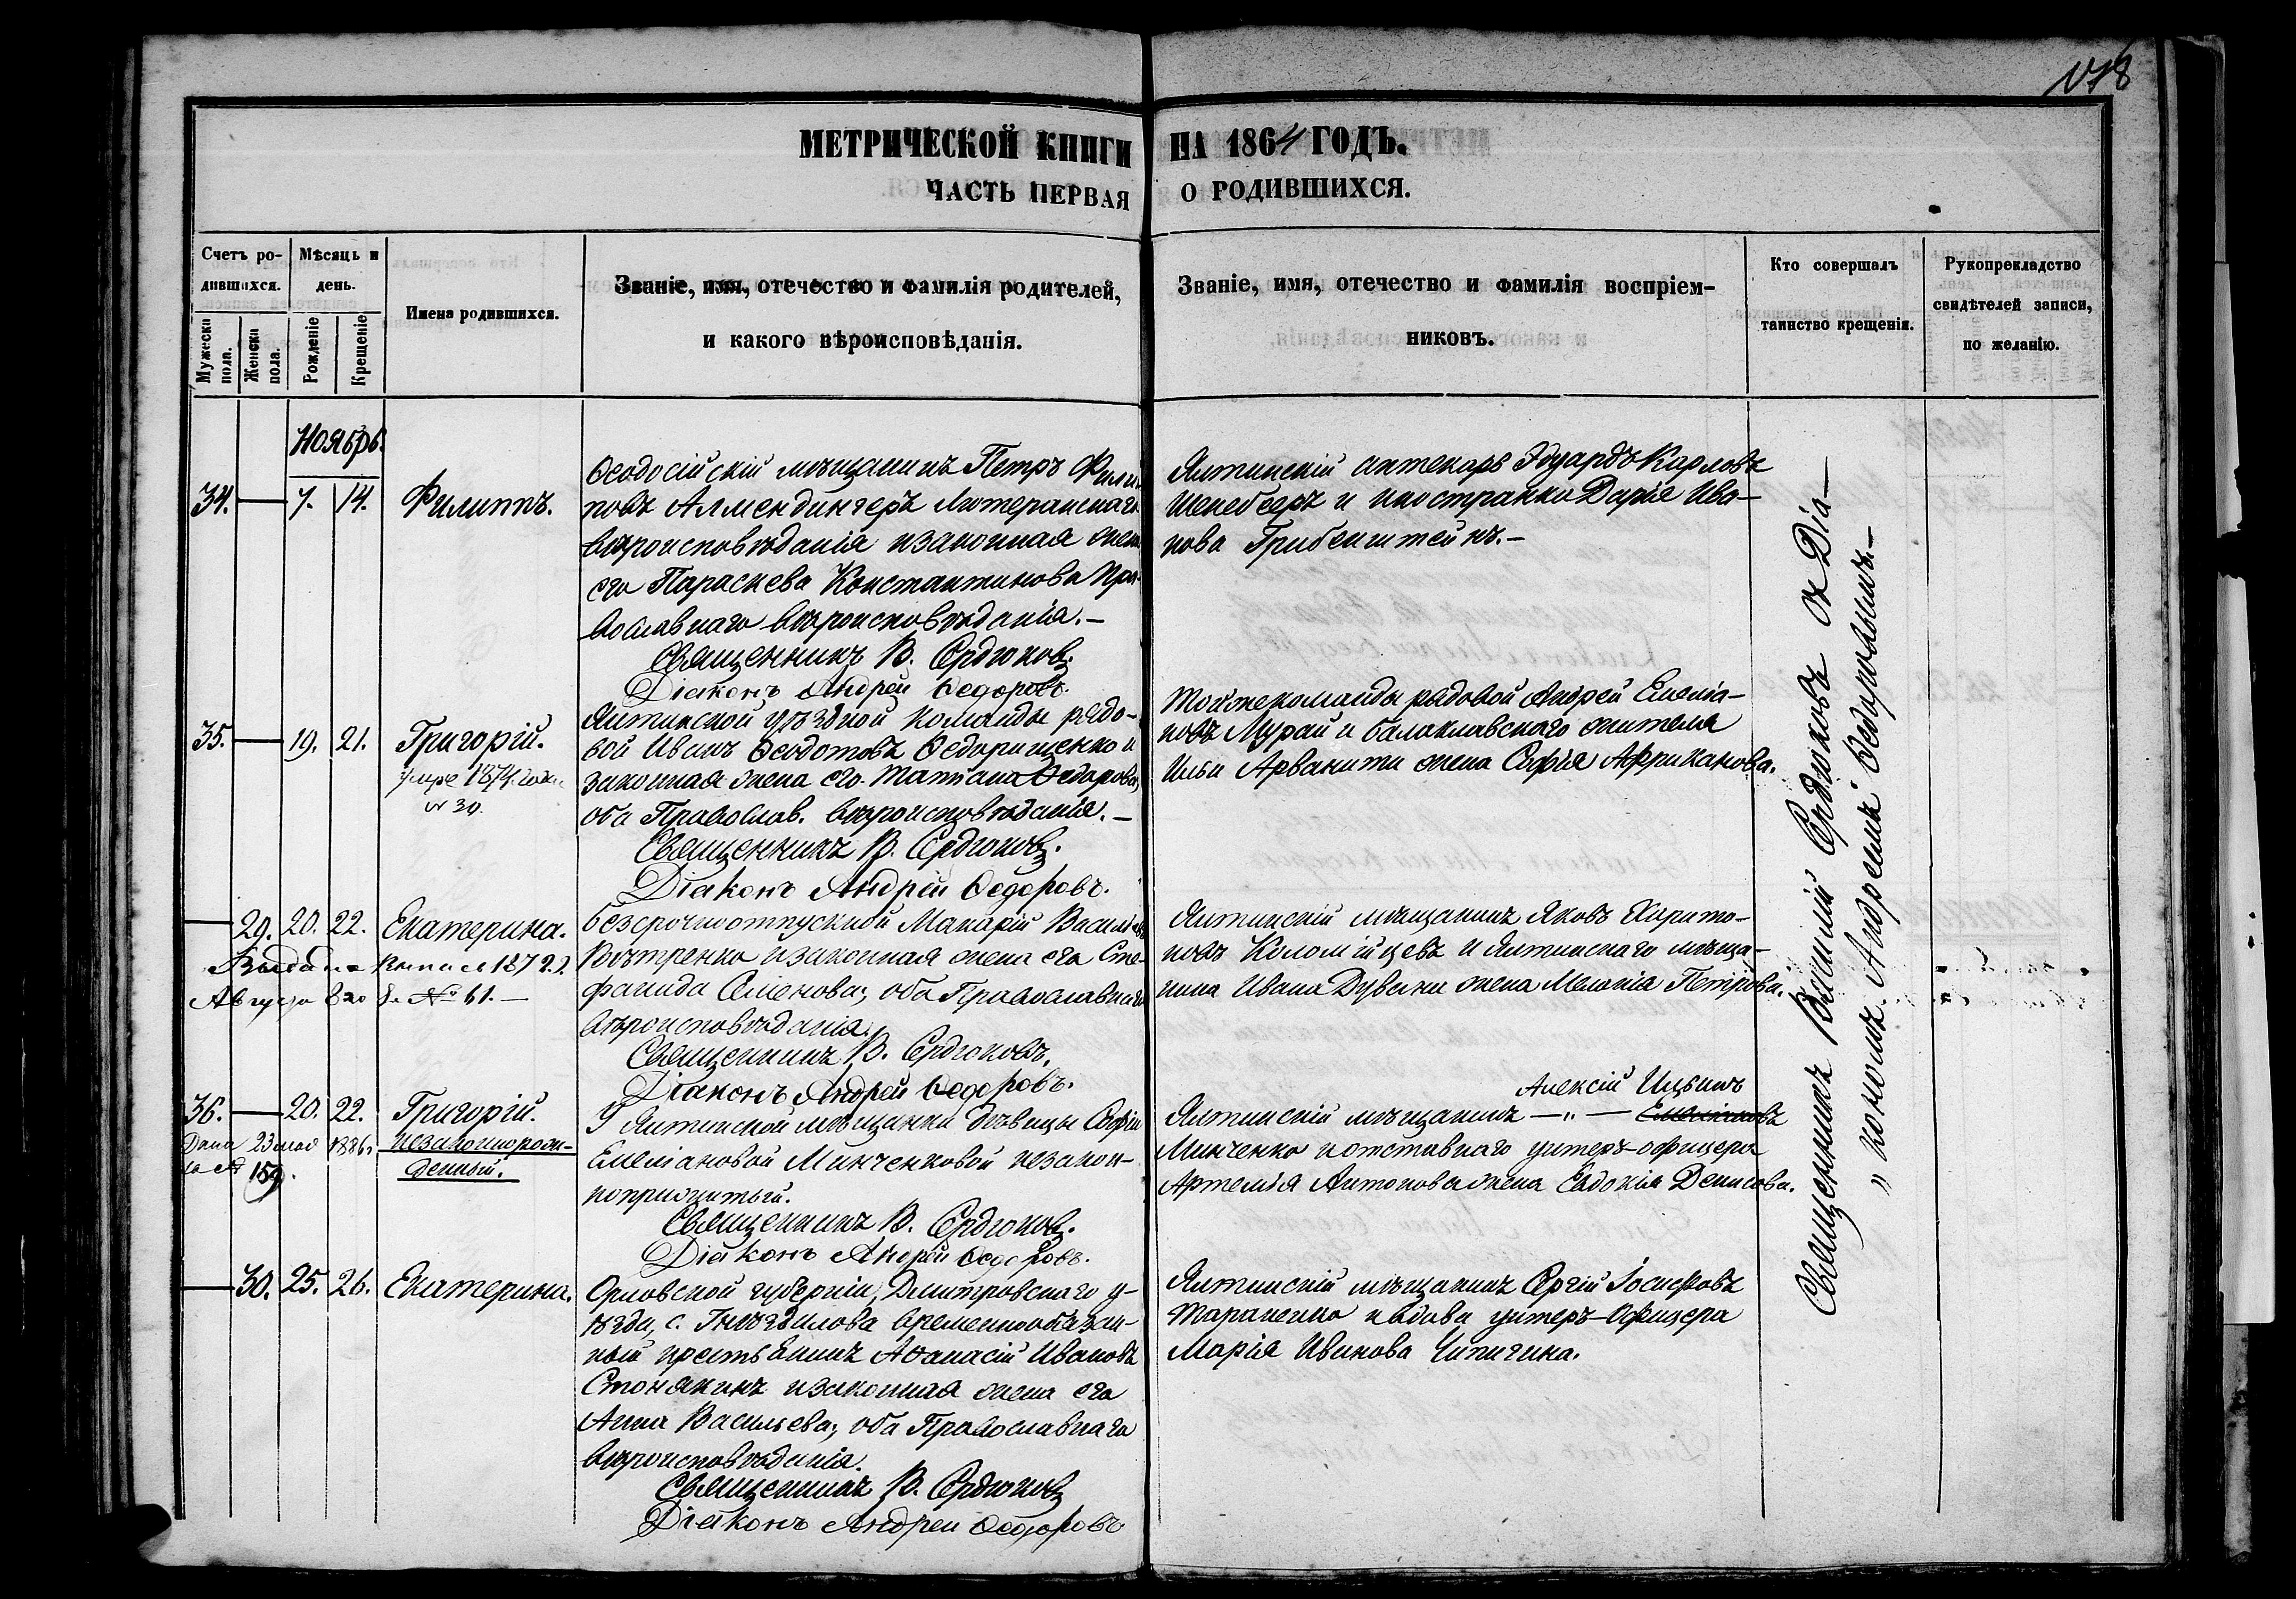 118
МЕТРИЧЕСКОЙ КНИГИ НА 1864 ГОДЪ.
ЧАСТЬ ПЕРВАЯ О РОДИВШИХСЯ.
Счетъ ро-
дившихся.
Мужеска пола.
Женска пола.
Мѣсяцъ и
день.
Рожденіе
Крещеніе
Имена родившихся.
Званіе, имя, отечество и фамилія родителей,
и какого вѣроисповѣданія.
Званіе, имя, отечество и фамилія воспріем-
никовъ.
Кто совершалъ
таинство крещенія.
Рукоприкладство
свидѣтелей записи,
по желанію.
Ноябрь.
34. — 7. 14. Филиппъ.
Ѳеодосійскій мѣщанинъ Петръ Филип-
повъ Алмендингеръ Лютеранскаго
вѣроисповѣданія и законная жена
его Параскева Константинова Пра-
вославнаго вѣроисповѣданія.—
Священникъ В. Сердюковъ.
Діаконъ Андрей Ѳедоровъ.
Ялтинскій аптекарь Эдуардъ Карловъ
и иностранка Дарія Ива-
нова Грибенштейнъ.—
35. — 19. 21. Григорій.
умре 1874 года
№ 30.
Ялтинской уѣздной команды рядо-
вой Иванъ Ѳеодотовъ Ѳедорищенко и
законная жена его Татіана Ѳедорова,
оба Православ. вѣроисповѣданія.—
Священникъ В. Сердюковъ.
Діаконъ Андрей Ѳедоровъ.
Тойже команды рядовой Андрей Емелія-
новъ Мурай и балаклавскаго жителя
Ильи Арванити жена Софія Африканова.
— 29. 20. 22. Екатерина.
Выдана выпись 1872 г.
Августа 8го д. № 61.—
Безсрочноотпускной Макарій Васильевъ
и законная жена его Сте-
фанида Семенова; оба Православнаго
вѣроисповѣданія.
Священникъ В. Сердюковъ.
Діаконъ Андрей Ѳедоровъ.
Ялтинскій мѣщанинъ Яковъ Харито-
новъ Коломійцевъ и Ялтинскаго мѣща-
нина Ивана Дувакина жена Меланія Петрова.
36. — 20. 22. Григорій.
Дана 23 мая 1886 г.
за № 159.
незаконнорож-
денный.
У Ялтинской мѣщанки дѣвицы Софіи
Емеліановой Минченковой незакон-
ноприжитый.
Священникъ В. Сердюковъ.
Діаконъ Андрей Ѳедоровъ.
Алексій Ильинъ
Ялтинскій мѣщанинъ —"— Емеліановъ
Минченко и отставнаго унтеръ-офицера
Артемія Антонова жена Евдокія Денисова.
— 30. 25. 26. Екатерина.
Орловской губерніи, Дмитровскаго у-
ѣзда, с. Гнѣздилова временнообязан-
ный крестьянинъ Аѳанасій Ивановъ
Стонякинъ и законная жена его
Анна Васильева; оба Православнаго
вѣроисповѣданія.
Священникъ В. Сердюковъ
Діаконъ Андрей Ѳедоровъ
Ялтинскій мѣщанинъ Сергій Іосифовъ
Тараненко и вдова унтеръ-офицера
Марія Иванова Чипигина.
Священникъ Василій Сердюковъ съ Діа—
" кономъ Андреемъ Ѳедоровымъ.—